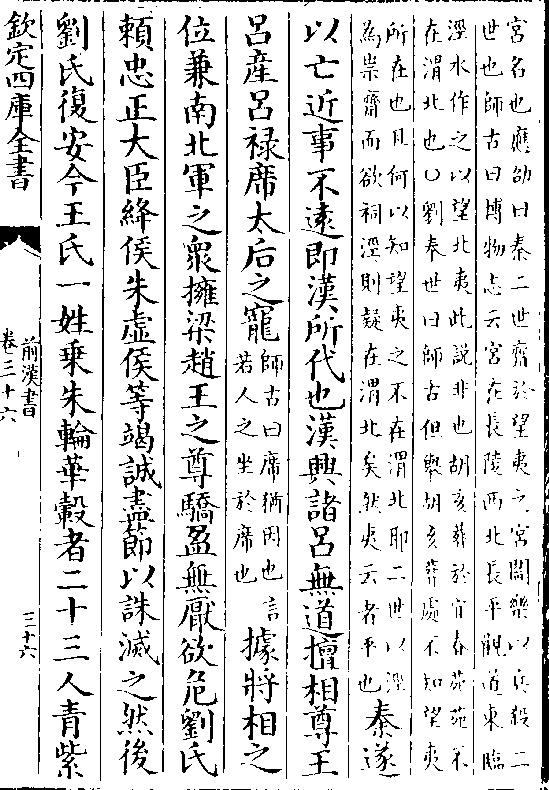 宮名也應劭曰秦二世齋於望夷之宮閻樂以兵殺二
世也師古曰博物志云宮在長陵西北長平觀道東臨
涇水作之以望北夷此說非也胡亥葬於宜春苑苑不
在渭北也○劉奉世曰師古但舉胡亥葬處不知望夷
所在也且何以知望夷之不在渭北耶二世以涇
為祟齋而欲祠涇則疑在渭北矣然夷云者平也秦遂
以亡近事不遠即漢所代也漢興諸呂無道擅相尊王
呂產呂祿席太后之寵師古曰席猶因也言若人之坐於席也據將相之
位兼南北軍之眾擁梁趙王之尊驕盈無厭欲危劉氏
賴忠正大臣絳侯朱虛侯等竭誠盡節以誅滅之然後
劉氏復安今王氏一姓乗朱輪華轂者二十三人青紫
欽定四庫全書
前漢書
卷三十六
三十六